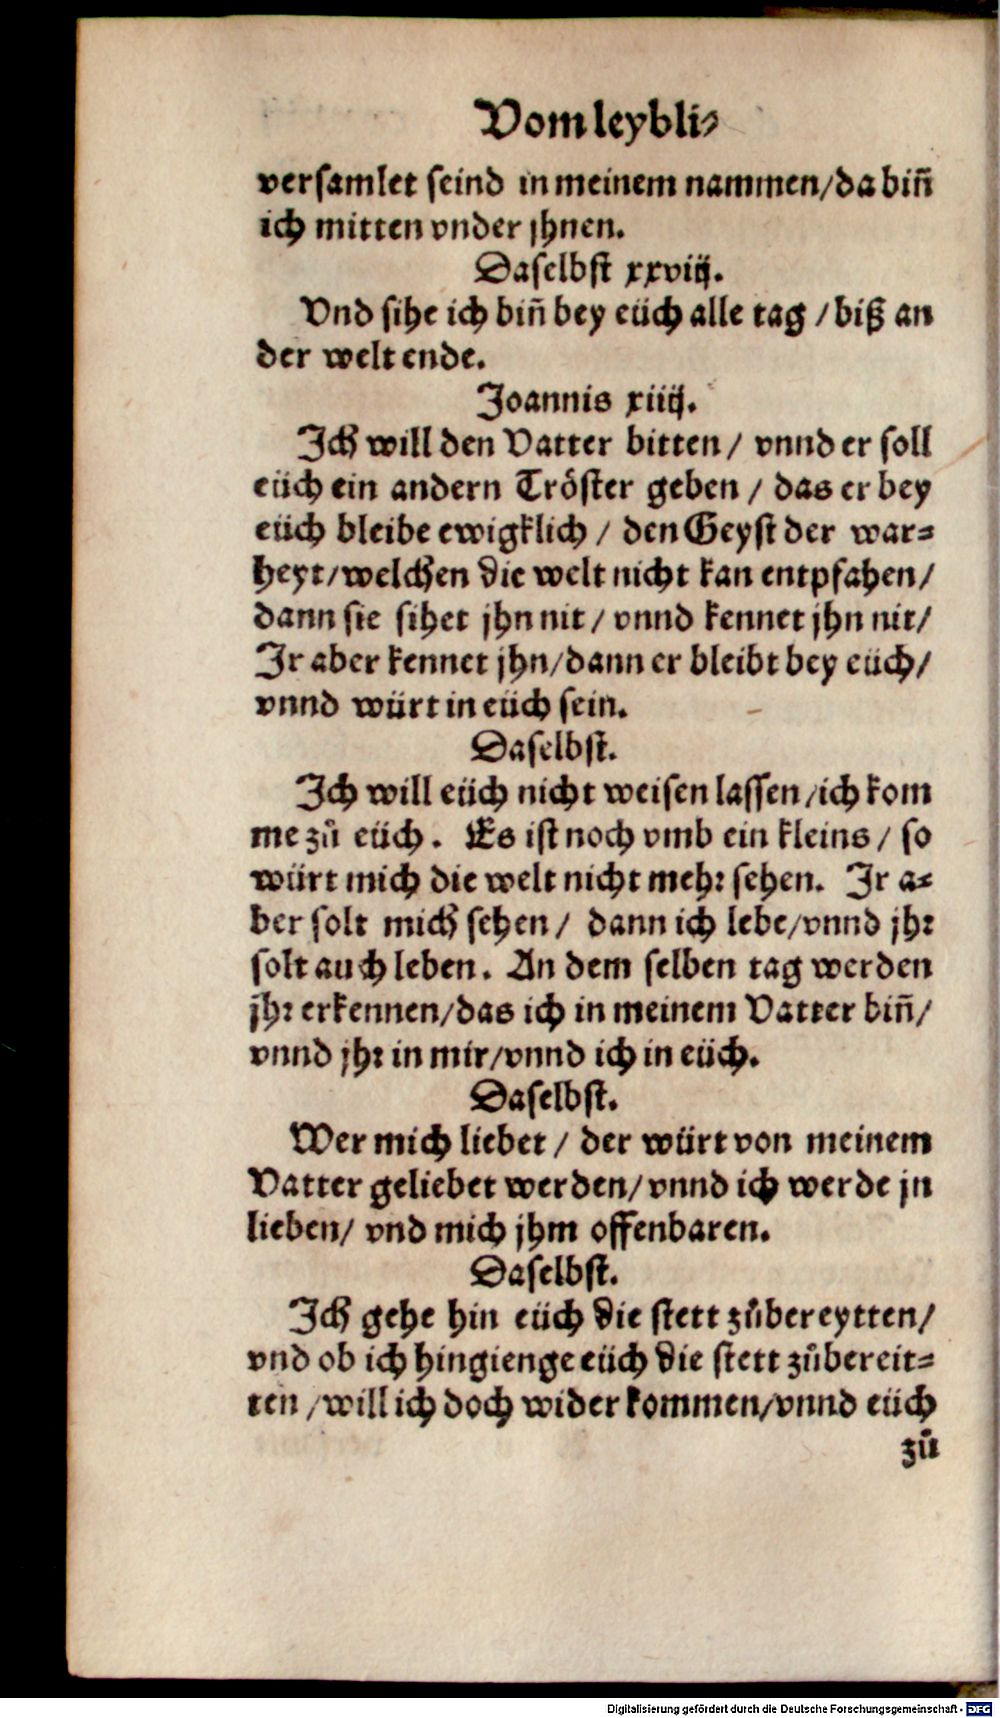 Vom leybli⸗
versamlet seind in meinem nammen/da biñ
ich mitten vnder jhnen.
Daselbst xxviij.
Vnd sihe ich biñ bey eüch alle tag / biß an
der welt ende.
Joannis xiiij.
Ich will den Vatter bitten / vnnd er soll
eüch ein andern Tröster geben / das er bey
eüch bleibe ewigklich / den Geyst der war⸗
heyt/welchen die welt nicht kan entpfahen/
dann sie sihet jhn nit / vnnd kennet jhn nit/
Ir aber kennet jhn/dann er bleibt bey eüch/
vnnd würt in eüch sein.
Daselbst.
Ich will eüch nicht weisen lassen/ich kom
me zů eüch. Es ist noch vmb ein kleins / so
würt mich die welt nicht mehr sehen. Ir a⸗
ber solt mich sehen / dann ich lebe/vnnd jhr
solt auch leben. An dem selben tag werden
jhr erkennen/das ich in meinem Vatter biñ/
vnnd jhr in mir/vnnd ich in eüch.
Daselbst.
Wer mich liebet / der würt von meinem
Vatter geliebet werden/vnnd ich werde jn
lieben/ vnd mich jhm offenbaren.
Daselbst.
Ich gehe hin eüch die stett zůbereytten/
vnd ob ich hingienge eüch die stett zůbereit⸗
ten /will ich doch wider kommen/vnnd eüch
zů
Digitalisierung gefördert durch die Deutsche Forschungsgemeinschaft - DFG